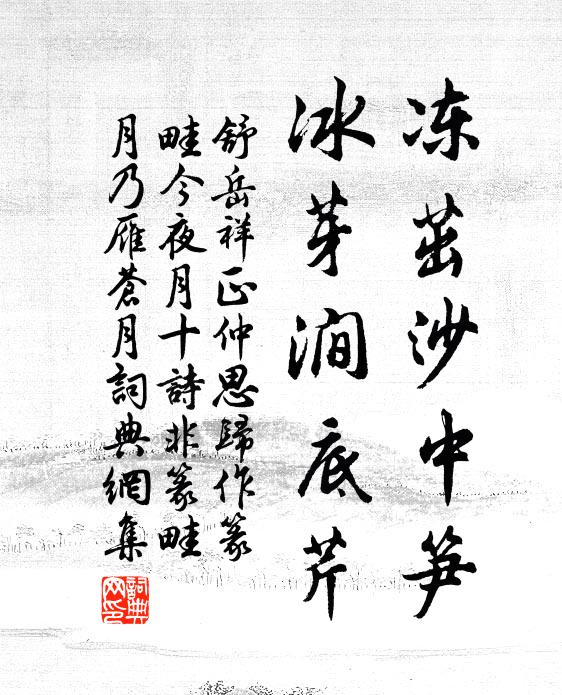 冻茁沙中笋
冰芽涧底芹
舒岳祥正仲思歸作篆
畦今夜月十詩非篆畦
月乃雁蒼月詞典網集
詞典网印